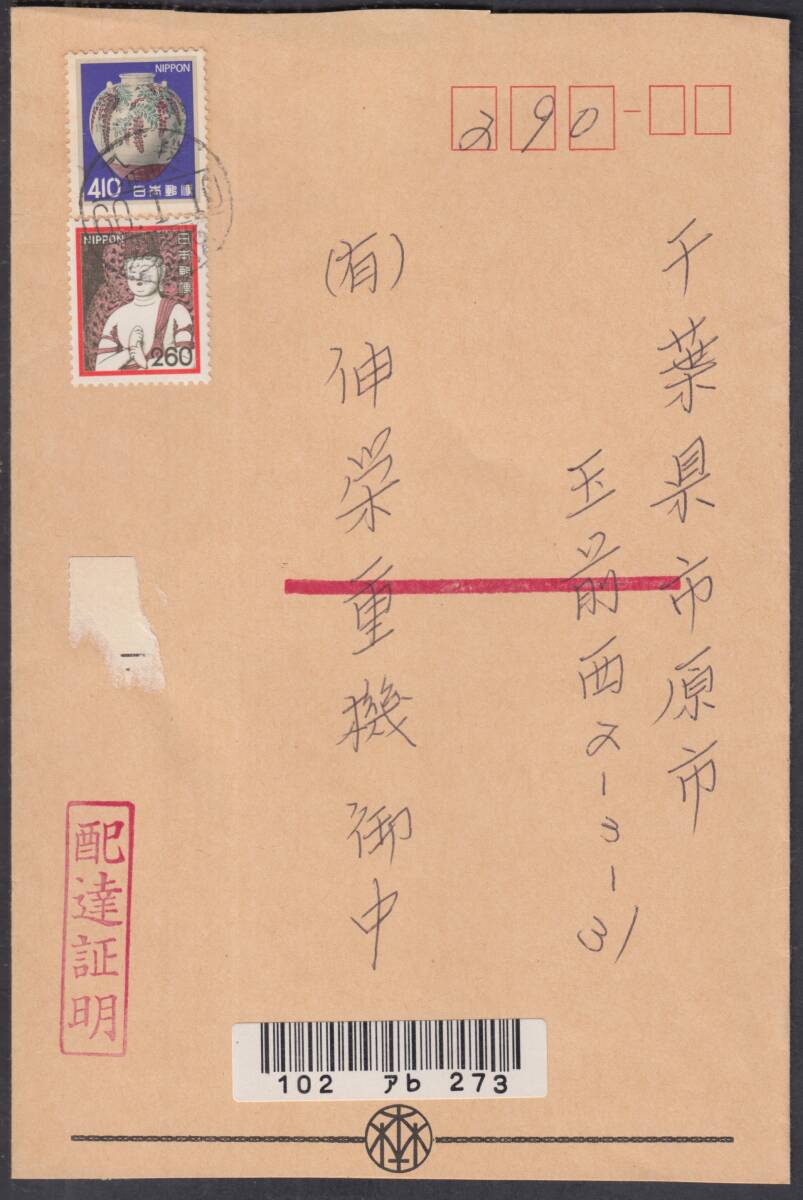 290
千葉県市原市
玉前西2-3-31
(有)伸栄重機御中
NIPPON
410 日本郵便
60.1.10
NIPPON
日本郵便
260
配達証明
102 アb 273